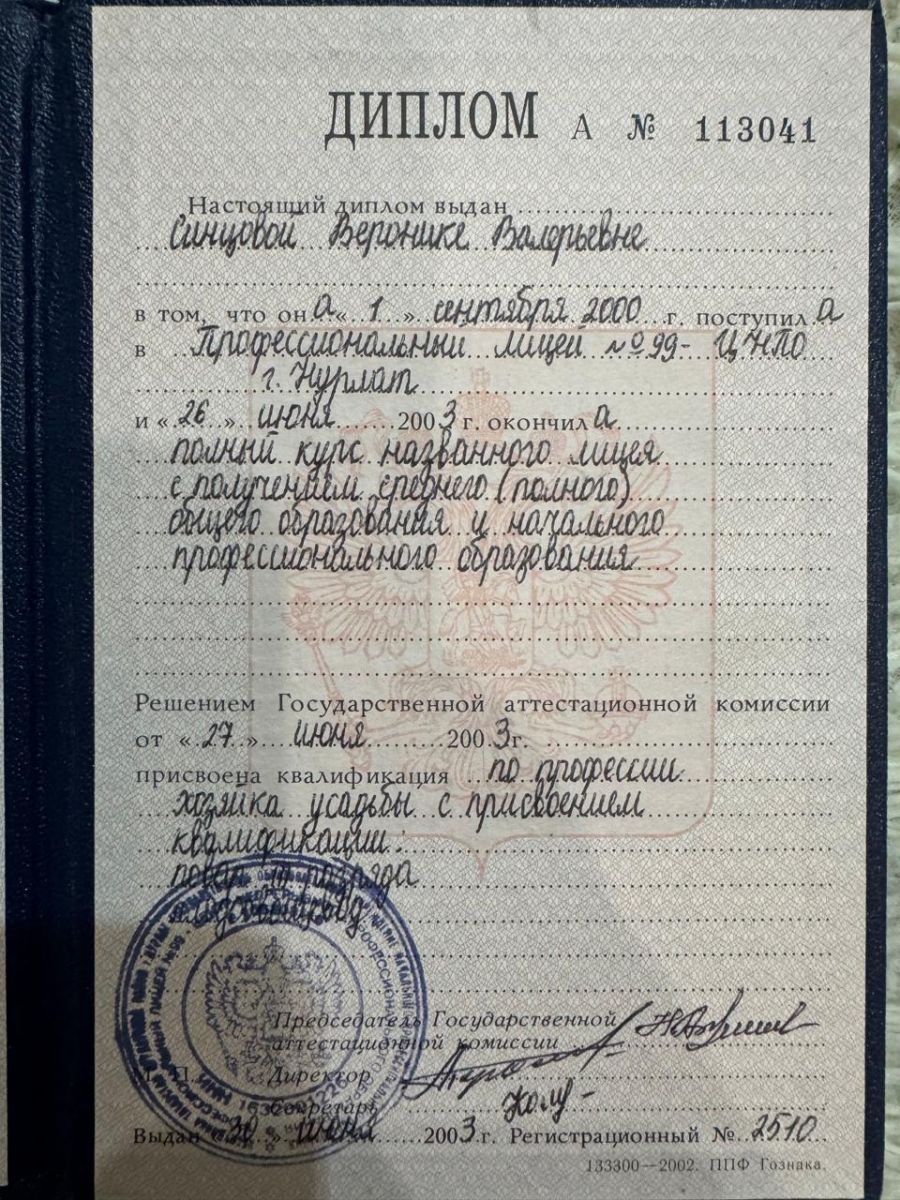 ДИПЛОМ А № 113041
Настоящий диплом выдан
Синцовой Веронике Валерьевне
в том, что он а « 1 » сентября 2000 г. поступил а
в Профессиональный лицей №99- ЦНПО
г. Нурлат
и « 26 » июня 2003 г. окончил а
полный курс названного лицея
с получением среднего (полного)
общего образования и начального
профессионального образования
Решением Государственной аттестационной комиссии
от « 27 » июня 2003 г.
присвоена квалификация по профессии
хозяйка усадьбы с присвоением
квалификации:
повар III разряда
Председатель Государственной
аттестационной комиссии
М. П. Директор
Секретарь
Выдан « 30 » июня 2003 г. Регистрационный № 2510
133300—2002. ППФ Гознака.